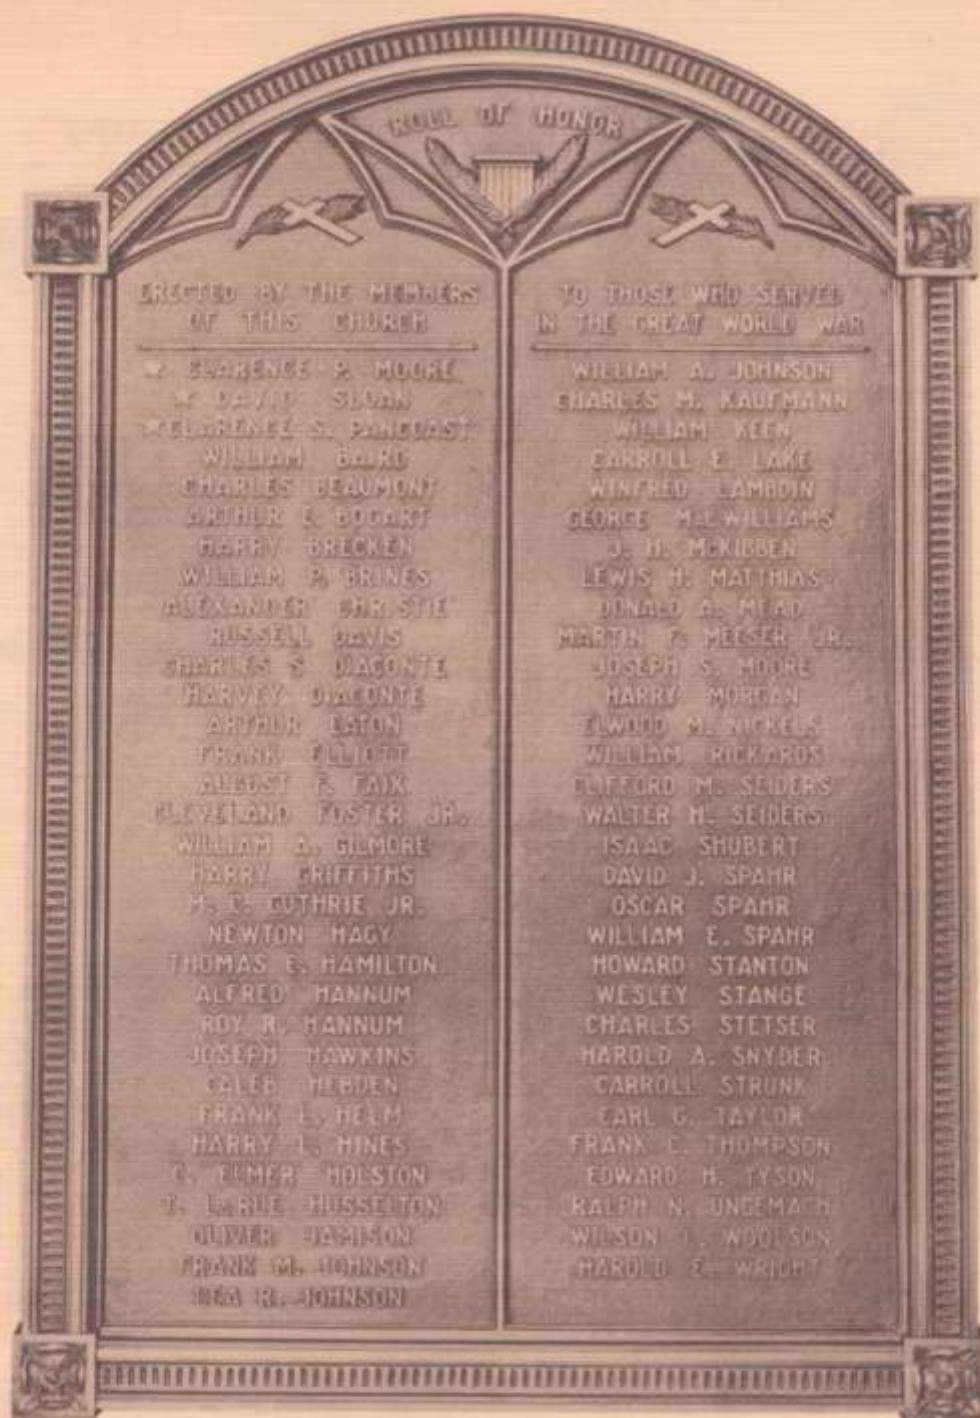 ROLL OF HONOR
ERECTED BY THE MEMBERS
OF THIS CHURCH
★ CLARENCE P. MOORE
★ DAVID SLOAN
★ CLARENCE S. PANCOAST
WILLIAM BAIRD
CHARLES BEAUMONT
ARTHUR E. BOGART
HARRY BRECKEN
WILLIAM P. BRINES
ALEXANDER CHRISTIE
RUSSELL DAVIS
CHARLES S. DIACONTE
HARVEY DIACONTE
ARTHUR EATON
FRANK ELLIOTT
AUGUST F. FAIX
CLEVELAND FOSTER JR.
WILLIAM A. GILMORE
HARRY GRIFFITHS
M. C. GUTHRIE JR.
NEWTON HAGY
THOMAS E. HAMILTON
ALFRED HANNUM
ROY R. HANNUM
JOSEPH HAWKINS
CALEB HEBDEN
FRANK L. HELM
HARRY L. HINES
C. ELMER HOLSTON
T. LARUE HUSSELTON
OLIVER JAMISON
FRANK M. JOHNSON
LEA R. JOHNSON
TO THOSE WHO SERVED
IN THE GREAT WORLD WAR
WILLIAM A. JOHNSON
CHARLES M. KAUFMANN
WILLIAM KEEN
CARROLL E. LAKE
WINFRED LAMBDIN
GEORGE McWILLIAMS
J. H. McKIBBEN
LEWIS H. MATTHIAS
DONALD A. MEAD
MARTIN F. MEESER JR.
JOSEPH S. MOORE
HARRY MORGAN
ELWOOD M. NICKELS
WILLIAM RICKARDS
CLIFFORD M. SEIDERS
WALTER H. SEIDERS
ISAAC SHUBERT
DAVID J. SPAHR
OSCAR SPAHR
WILLIAM E. SPAHR
HOWARD STANTON
WESLEY STANGE
CHARLES STETSER
HAROLD A. SNYDER
CARROLL STRUNK
EARL G. TAYLOR
FRANK C. THOMPSON
EDWARD H. TYSON
RALPH N. UNGEMACH
WILSON WOOLSON
HAROLD E. WRIGHT